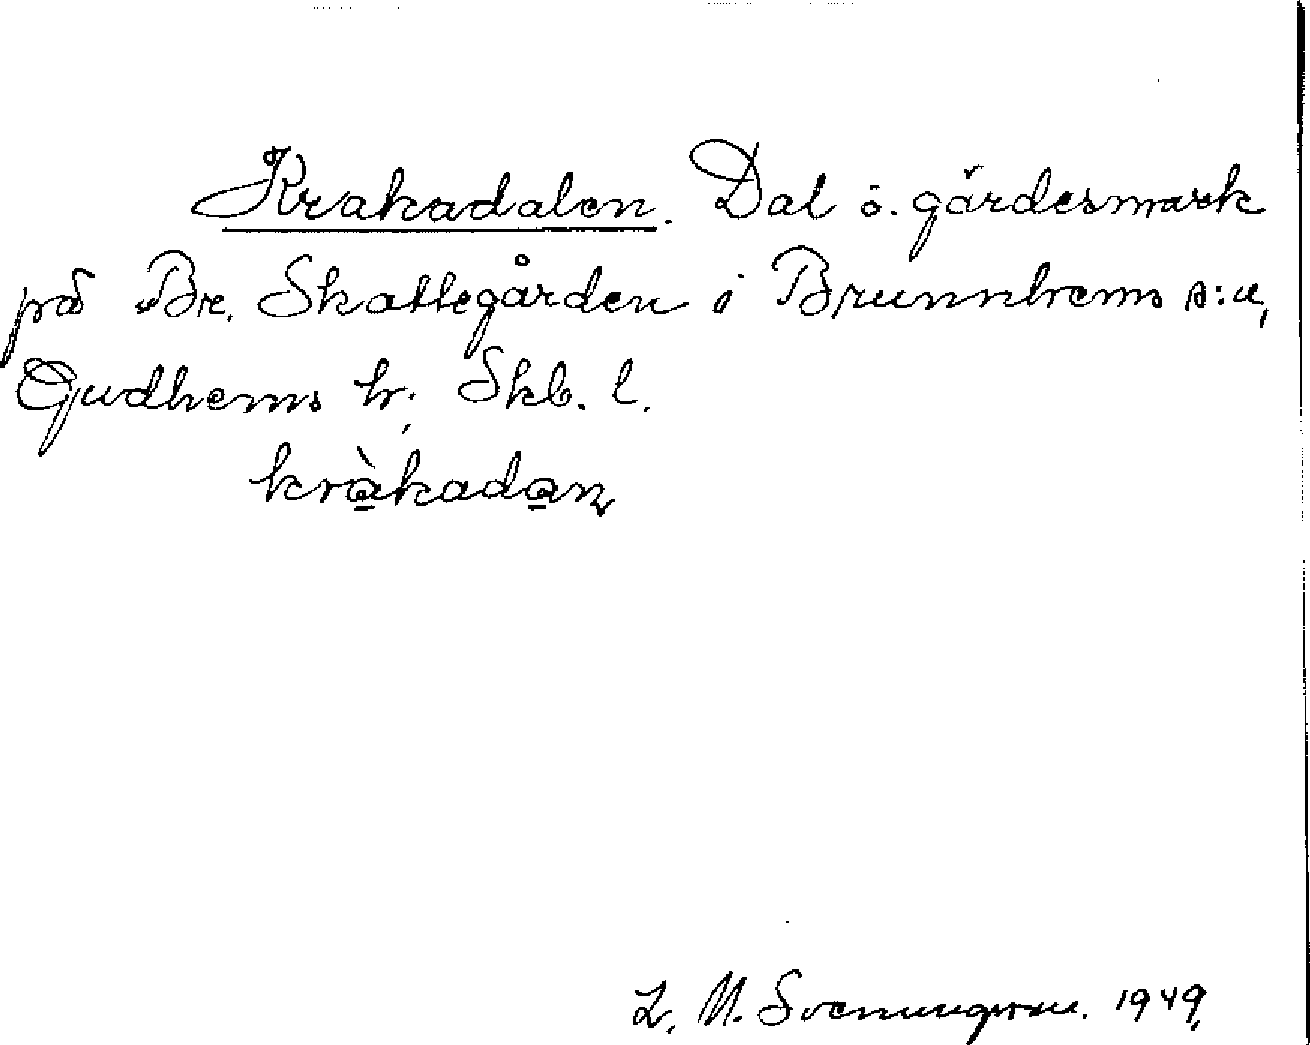 Krakadalen. Dal ö. gärdesmark
på Br. Skattegården i Brunnhems s:n,
Gudhems hr. Skb. l.
kràkadan
L. M. Svenungsson. 1949.